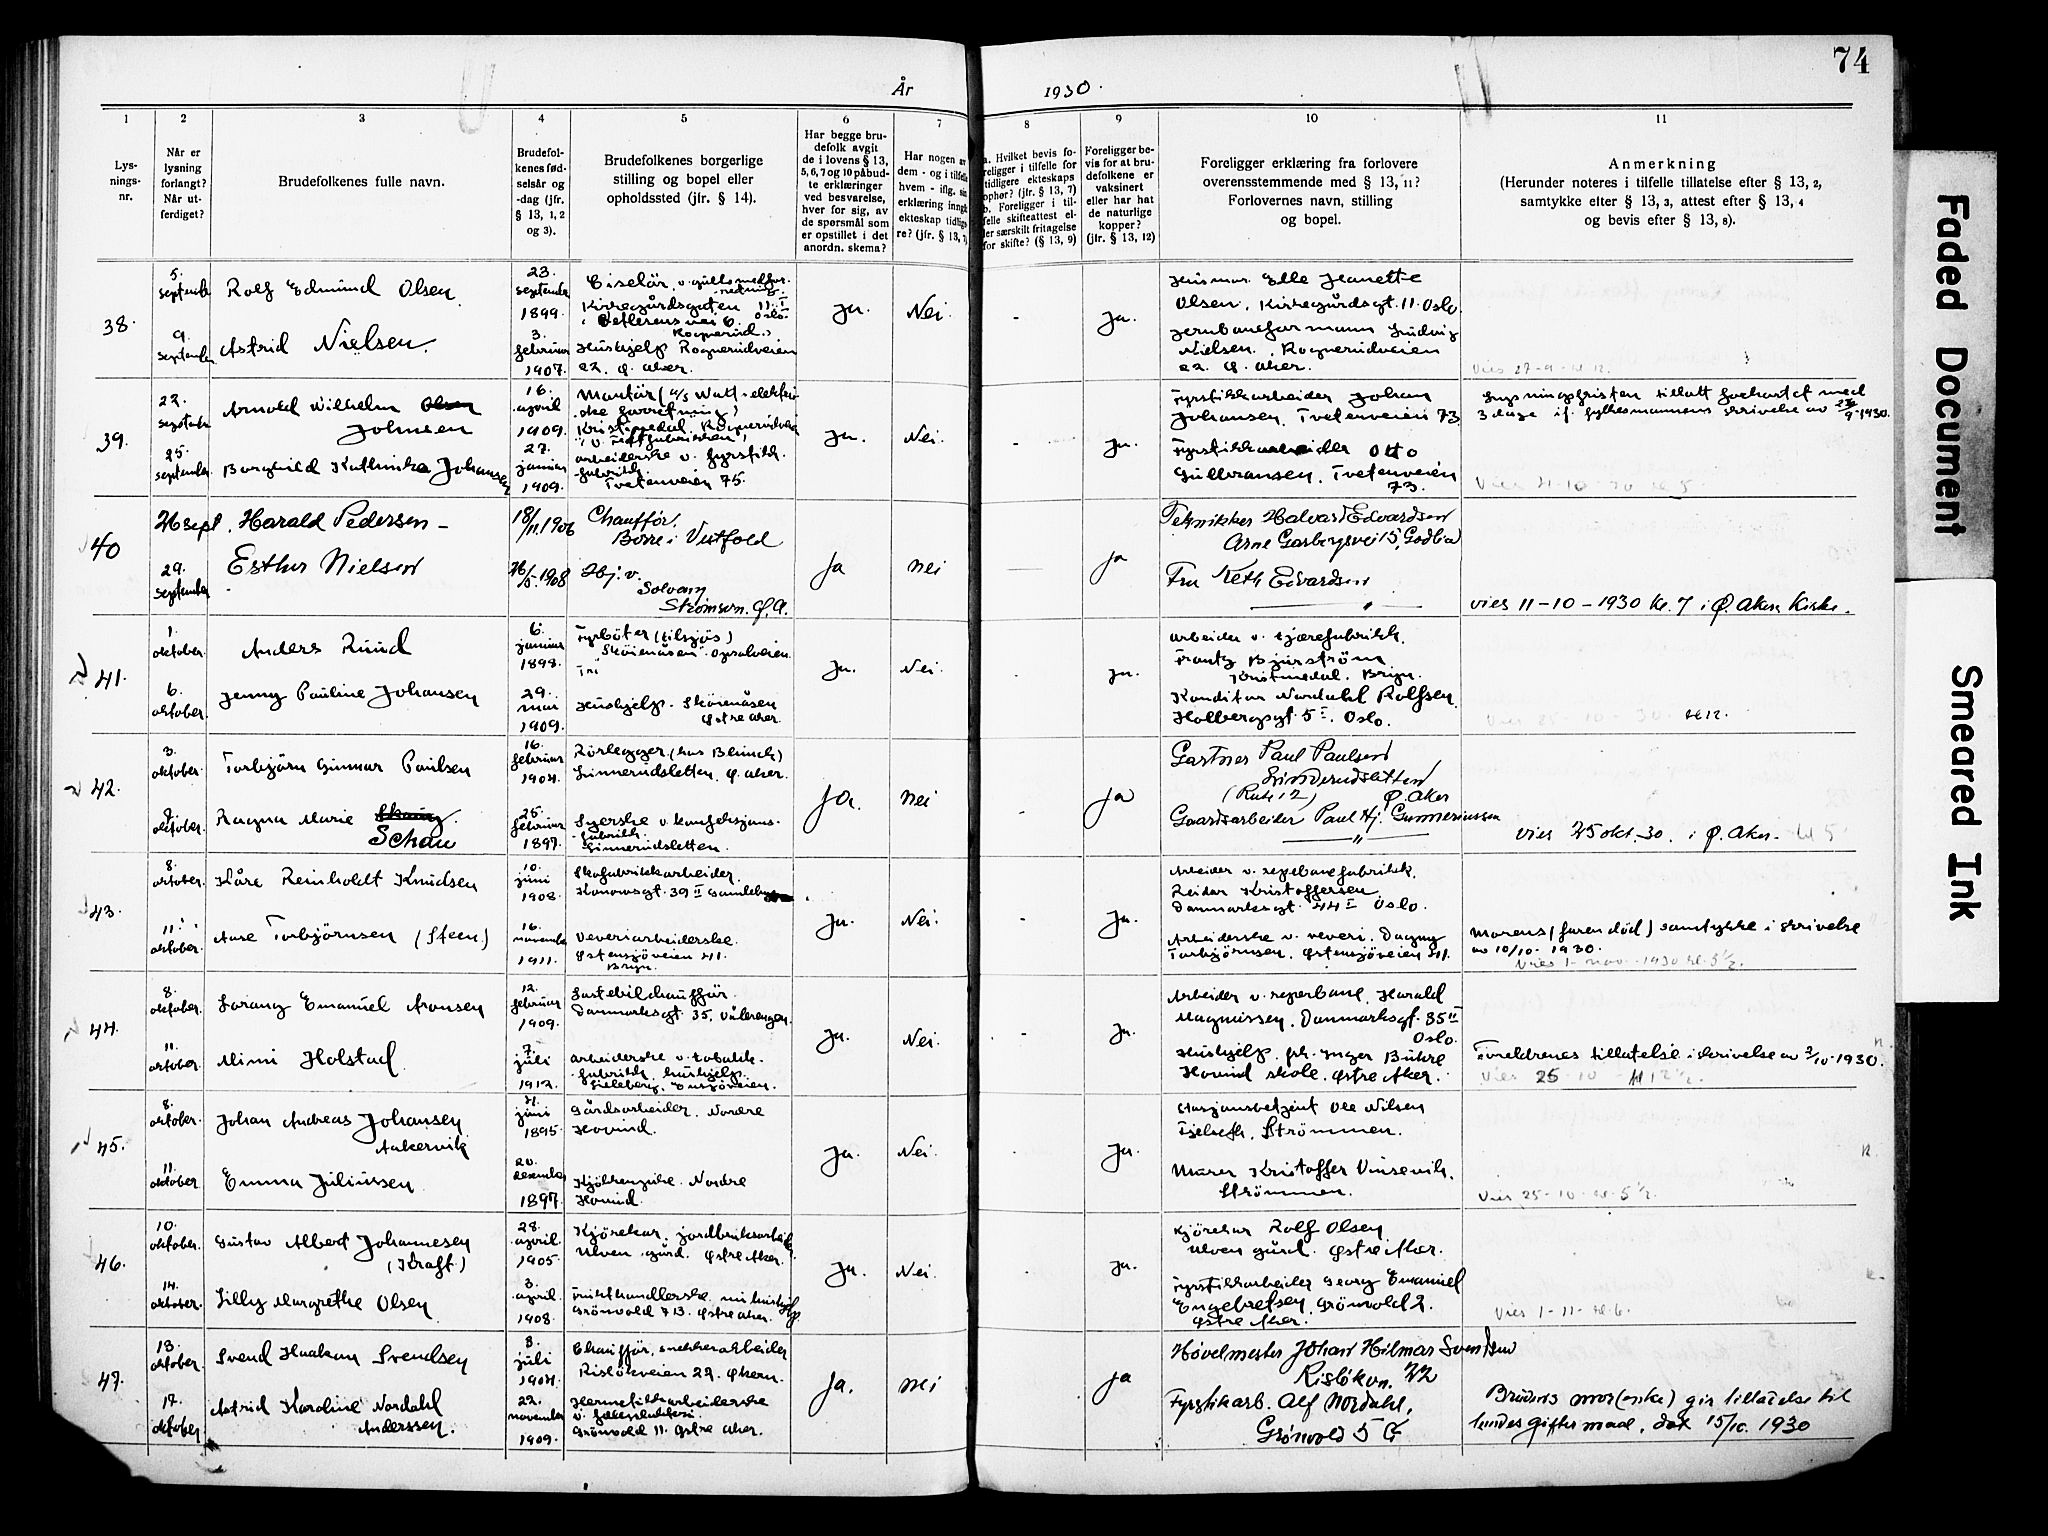 74
År 1930.
1 2 3 4 5 6 7 8 9 10 11
Lysningsnr.
Når er lysning forlangt? Når utferdiget?
Brudefolkenes fulle navn.
Brudefolkenes fødselsår og -dag (jfr. § 13, 1, 2 og 3).
Brudefolkenes borgerlige stilling og bopel eller opholdssted (jfr. § 14).
Har begge brudefolk avgit de i lovens § 13, 5, 6, 7 og 10 påbudte erklæringer ved besvarelse, hver for sig, av de spørsmål som er opstillet i det anordn. skema?
Har nogen av dem - og i tilfelle hvem - iflg. sin erklæring inngått ekteskap tidligere? (jfr. § 13,
a. Hvilket bevis foreligger i tilfelle for tidligere ekteskaps ophør? (jfr. § 13, 7) b. Foreligger i tilfelle skifteattest eller særskilt fritagelse for skifte? (§ 13, 9)
Foreligger bevis for at brudefolkene er vaksinert eller har hat de naturlige kopper? (jfr. § 13, 12)
Foreligger erklæring fra forlovere overensstemmende med § 13, 11? Forlovernes navn, stilling og bopel.
Anmerkning
(Herunder noteres i tilfelle tillatelse efter § 13, 2, samtykke efter § 13, 3, attest efter § 13, 4 og bevis efter § 13, 8).
38.
5. september
9. september
Rolf Edmund Olsen.
Astrid Nielsen.
23. september 1899.
3. februar 1907.
Kirkegårdsgaten 11. Oslo.
Hushjelp Rognerudveien 22. Ø. Aker.
Ja. Nei - Ja.
Husmor Elle Jeanette
Olsen. Kirkegårdsgt. 11. Oslo.
Jernbaneformann Ludvig
Nielsen. Rognerudveien
22. Ø. Aker.
Vies 27-9- kl 12.
39.
22. september
25. september
Arnold Wilhelm Olsen
Johnsen
Borghild Kathinka Johansen
16. april 1909.
27. januar 1909.
Montør (A/S Watt - elektriske forretning)
arbeiderske v. fyrstikkfabrikk. Tvetenveien 75.
Ja. Nei. - Ja.
Fyrstikkarbeider Johan
Johansen. Tvetenveien 73
Fyrstikkarbeider Otto
Gulbransen. Tvetenveien
73.
Lysningsfristen tillatt forkortet med
3 dage if. fylkesmannens skrivelse av 23/9-1930.
40
26 sept.
29. september
Harald Pedersen -
Esther Nielsen
18/11.1906
26/5.1908
Chauffør.
Borre i Vestfold
Hj. v.
Solvang
Strømsvn. Ø.A.
Ja nei — Ja
Tekniker Halvard Edvardsen
Arne Garborgsvei 15, Godlia
Fru Keth Edvardsen
— " —
vies 11-10-1930 kl. 7 i Ø. Aker Kirke.
41.
1. oktober
6. oktober.
Anders Ruud
Jenny Pauline Johansen
6. januar 1898.
29. mai 1909.
Fyrbøter (tilsjøs)
Skøienåsen. Opsalveien.
Hushjelp. Skøienåsen
Østre Aker.
Ja. Nei. - Ja.
arbeider v. tjærefabrikk.
Frantz Bjurström.
Bryn.
Konditor Nordahl Rolfsen.
Holbergsgt. 5 I. Oslo.
Vies 25-10-30. kl 12.
42.
3. oktober.
7. oktober.
Torbjørn Gunnar Paulsen
Ragna Marie Skau.
Schau
16. februar 1904.
25. februar 1897.
Rørlegger (hos Blunck)
Linnerudsletten. Ø. Aker.
Syerske v. konfeksjons-
fabrikk.
Linnerudsletten.
Ja. nei - Ja
Gartner Paul Paulsen
Linderudsletten
(Rute 12) Ø. Aker
Gaardsarbeider Paul Hj. Gunneriussen
— " —
vies 25 okt. 30. i Ø. Aker. kl 5
43.
8. oktober.
11. oktober.
Kåre Reinholdt Knudsen
Aase Torbjørnsen (Steen)
10. juni 1908.
16. november 1911.
Skofabrikkarbeider.
Konowsgt. 39 II Gamlebyen.
Veveriarbeiderske.
Østensjøveien 41.
Bryn.
Ja. Nei. - Ja.
Arbeider v. reperbanefabrikk.
Reidar Kristoffersen
Danmarksgt. 44 I Oslo.
Arbeiderske v. veveri. Dagny
Torbjørnsen. Østensjøveien 41.
Morens (faren død) samtykke i skrivelse
av 10/10-1930.
Vies 1-nov.-1930 kl. 5½.
44.
8. oktober.
11. oktober.
Lorang Emanuel Aronsen
Mimi Holstad.
12. februar 1909.
7. juli 1912.
Lastebilchauffør.
Danmarksgt. 35. Vålerengen.
arbeiderske v. tobakk-
fabrikk. hushjelp.
Ensjøveien.
Ja. Nei. - Ja.
Arbeider v. reperbane. Harald
Magnussen. Danmarksgt. 35 II
Oslo.
Hushjelp. frk. Inger Buhre
Hovind skole. Østre Aker.
Foreldrenes tillatelse i skrivelse av 7/10-1930.
Vies 25-10- kl 12½.
45.
8. oktober.
11. oktober.
Johan Andreas Johansen
Aakervik
Emma Juliussen
21. juni 1895.
20. desember 1897.
Gårdsarbeider. Nordre
Hovind.
Kjøkkenpike. Nordre
Hovind.
Ja. Nei. - Ja.
Stasjonsbetjent Ole Nilsen
Strømmen.
Murer Kristoffer Vinsevik.
Strømmen.
Vies 25-10- kl 5½.
46.
10. oktober.
14. oktober.
Gustav Albert Johannesen
(Kraft)
Lilly Margrethe Olsen
28. april 1905.
3. april 1908.
Kjørekar. jordbruksarbeid.
Ulven gård. Østre Aker.
Frukthandlerske nu hushjelp.
Grønvold 713. Østre Aker.
Ja. Nei. - Ja.
Kjørekar Rolf Olsen.
Ulven gård. Østre Aker.
Fyrstikkarbeider Georg Emanuel
Engebretsen. Grønvold 2.
Østre Aker.
Vies 1-11- kl 6.
47.
13. oktober.
17. oktober
Svend Haakon Svendsen
Astrid Karoline Nordahl
Anderssen.
8. juli 1904.
22. november 1909.
Chauffør, snekkerarbeider
Risløkveien 22. Økern.
Hermetikkarbeiderske
Grønvold 11. Østre Aker.
Ja. nei - Ja
Høvelmester Johan Hilmar Svendsen
Risløkvn. 22
Fyrstikarb. Alf Nordahl,
Grønvold 5
Brudens mor (enke) gir tillatelse til
hendes giftermaal, dat 15/10. 1930
Faded Document
Smeared Ink